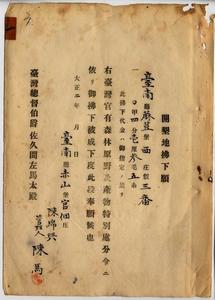 開墾地拂下願
臺南廳麻荳堡西庄三番
一〇甲四分壹厘參毛五糸
此拂下代金（御指定ノ通リ）
右臺灣官有森林原野及產物特別處分令ニ
依リ御拂下被成下度此段奉願候也
大正二年 月 日
臺南廳赤山堡官佃庄
陳
陳馬
臺灣總督伯爵佐久間左馬太殿